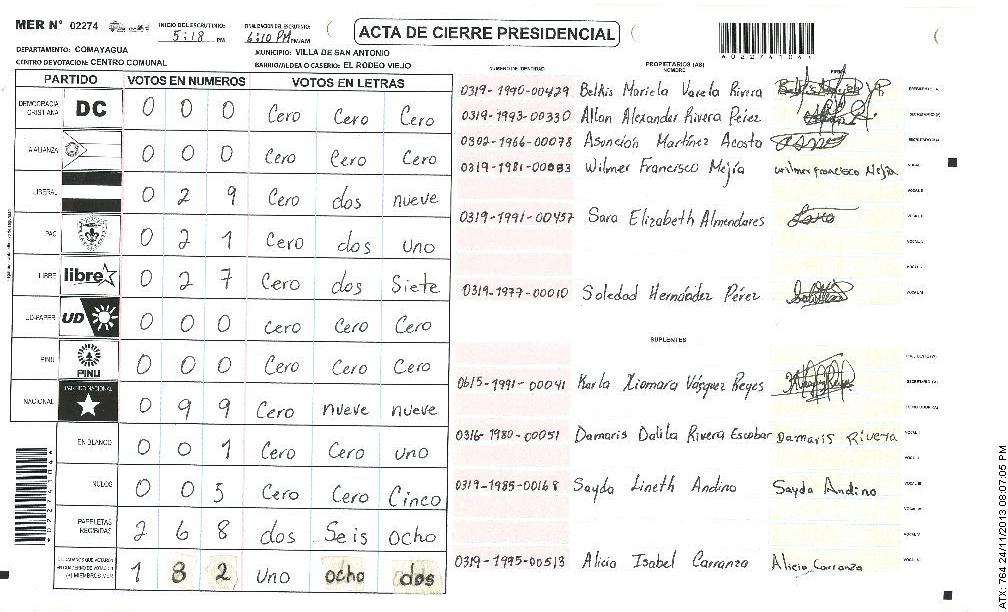 MER N° 02274 INICIO DEL ESCRUTINIO: 5:18 PM FINALIZACION DEL ESCRUTINIO: 6:10 PM PM/AM ACTA DE CIERRE PRESIDENCIAL
DEPARTAMENTO: COMAYAGUA MUNICIPIO: VILLA DE SAN ANTONIO
CENTRO DE VOTACION: CENTRO COMUNAL BARRIO/ALDEA O CASERIO: EL RODEO VIEJO
PARTIDO VOTOS EN NUMEROS VOTOS EN LETRAS
DEMOCRACIA CRISTIANA DC 0 0 0 Cero Cero Cero
ALIANZA 0 0 0 Cero Cero Cero
LIBERAL 0 2 9 Cero dos nueve
PAC 0 2 1 Cero dos uno
LIBRE libre 0 2 7 Cero dos Siete
UD-FAPER UD 0 0 0 Cero Cero Cero
PINU PINU 0 0 0 Cero Cero Cero
NACIONAL PARTIDO NACIONAL 0 9 9 Cero nueve nueve
EN BLANCO 0 0 1 Cero Cero uno
NULOS 0 0 5 Cero Cero Cinco
PAPELETAS RECIBIDAS 2 6 8 dos Seis ocho
1 8 2 uno ocho dos
NUMERO DE IDENTIDAD PROPIETARIOS (AS) NOMBRE FIRMA
0319-1990-00429 Belkis Mariela Varela Rivera
0319-1993-00330 Allan Alexander Rivera Pérez
0302-1966-00078 Asunción Martínez Acosta
0319-1981-00083 Wilmer Francisco Mejía Wilmer Francisco Mejia
0319-1991-00457 Sara Elizabeth Almendares Sara
0319-1977-00010 Soledad Hernández Pérez
SUPLENTES
0615-1991-00041 Karla Xiomara Vásquez Reyes
0316-1980-00051 Damaris Dalila Rivera Escobar Damaris Rivera
0319-1985-00168 Sayda Lineth Andino Sayda Andino
0319-1995-00513 Alicia Isabel Carranza Alicia Carranza
ATX: 764 24/11/2013 08:07:05 PM